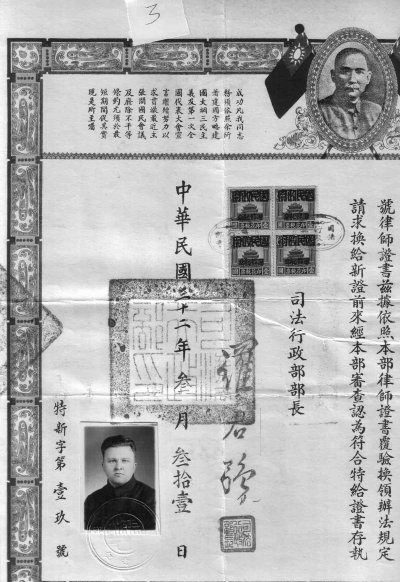 3
成功凡我同志
務須依照余所
著建國方略建
國大綱三民主
義及第一次全
國代表大會宣
言繼續努力以
求貫徹最近主
張開國民會議
及廢除不平等
條約尤須於最
短期間促其實
現是所至囑
號律師證書茲據依照本部律師證書覆驗換領辦法規定
請求換給新證前來經本部審查認為符合特給證書存執
司法行政部部長
羅君強
中華民國三十二年叁月叁拾壹日
特新字第壹玖號